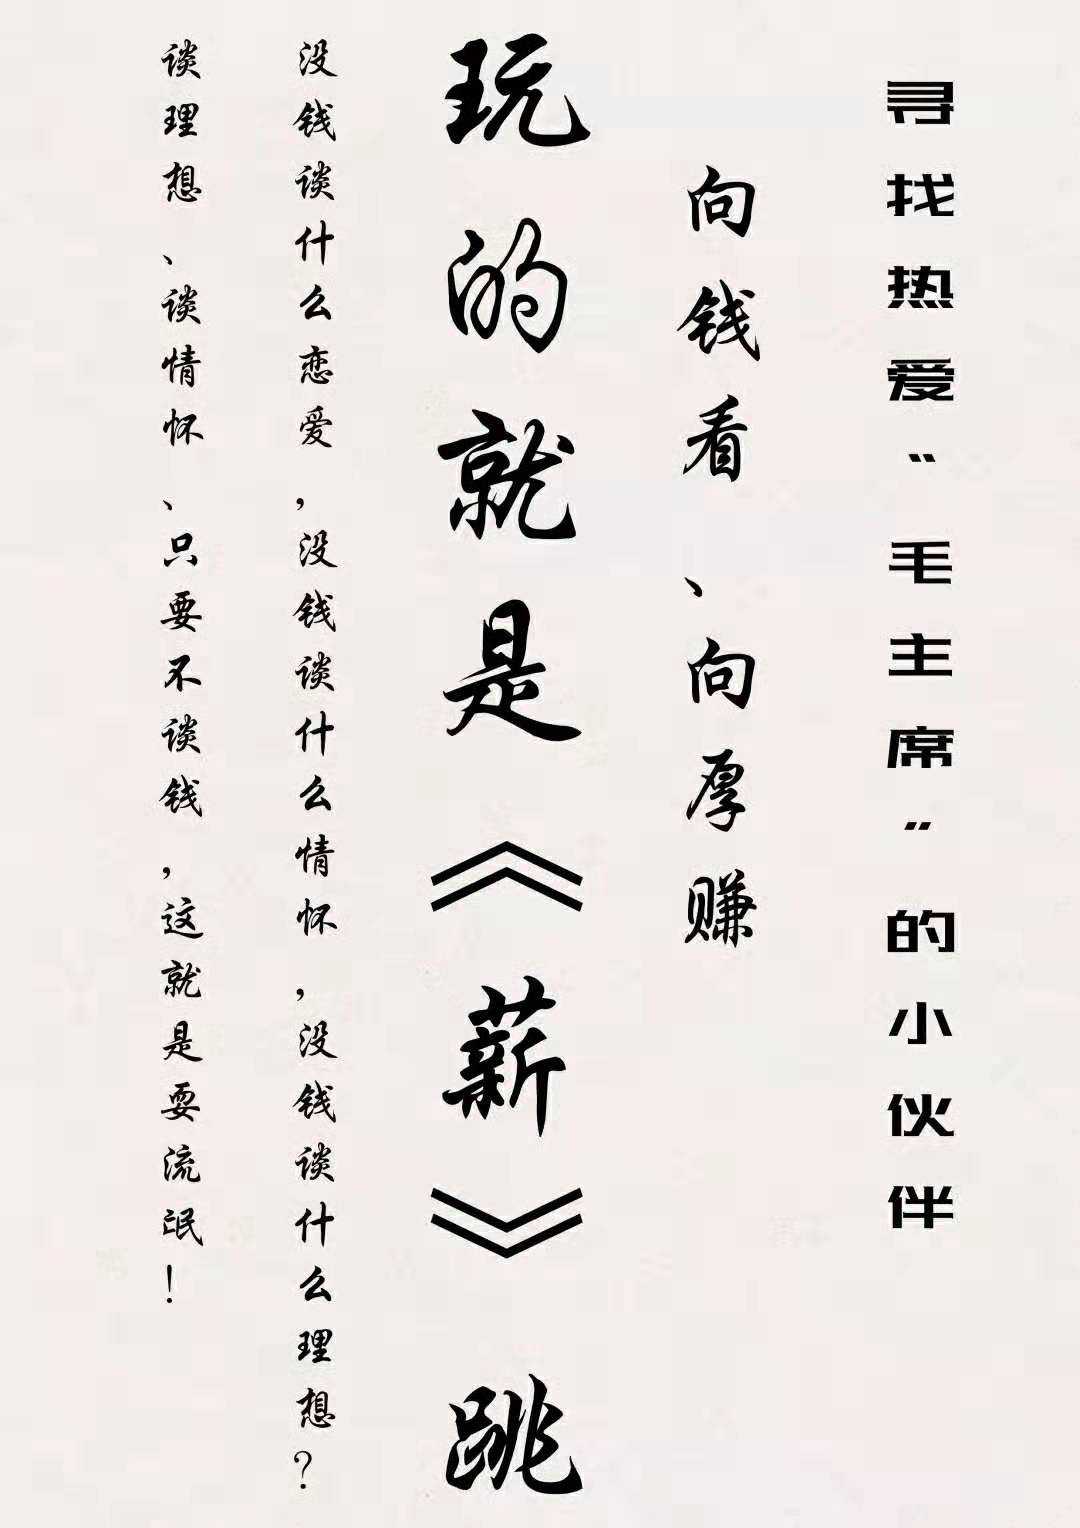 寻找热爱“毛主席”的小伙伴
向钱看、向厚赚
玩的就是《薪》跳
没钱谈什么恋爱，没钱谈什么情怀，没钱谈什么理想？
谈理想、谈情怀、只要不谈钱，这就是耍流氓！